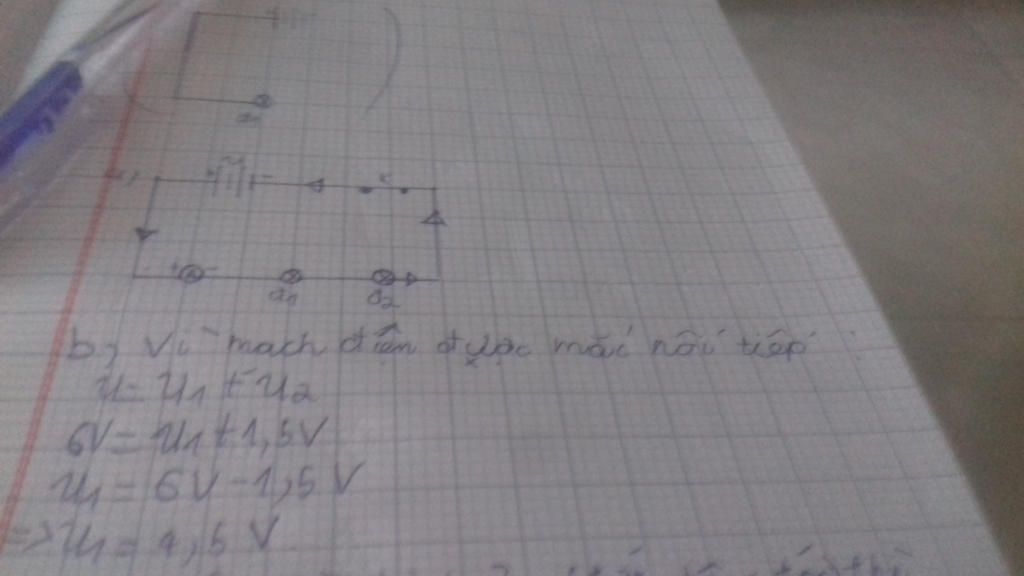 + -
K
+ -
Đ1 Đ2
b, Vì mạch điện được mắc nối tiếp :
U = U1 + U2
6V = U1 + 1,5V
U1 = 6V - 1,5 V
=> U1 = 4,5 V